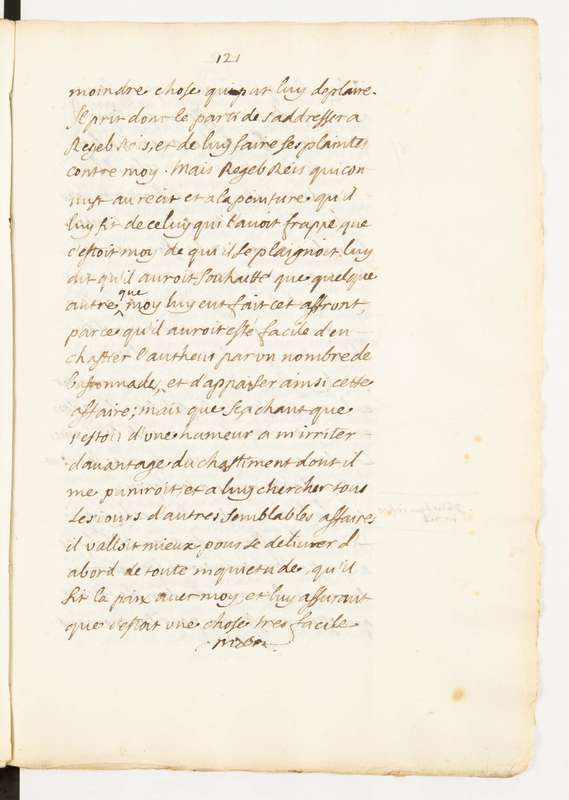 121
moindre chose qui put luy deplaire.
Il prit donc le parti de s'addresser a
Regeb Reis, et de luy faire ses plaintes
contre moy. Mais Regeb Reis qui con-
nust au recit et a la peinture qu'il
luy fit de celuy qui l'avoit frappé que
c'estoit moy de qui il se plaignoit, luy
dit qu'il auroit souhaitté que quelque
autre que moy luy eut fait cet affront,
parce qu'il auroit esté facile d'en
chastier l'autheur par un nombre de
bastonnades, et d'appaiser ainsi cette
affaire; mais que sçachant que
j'estois d'une humeur a m'irriter
davantage du chastiment dont il
me puniroit, et a luy chercher tous
les jours d'autres semblables affaires
il valloit mieux pour se delivrer d'
abord de toute inquietude, qu'il
fit la paix avec moy, et luy assurant
que c'estoit une chose tres facile